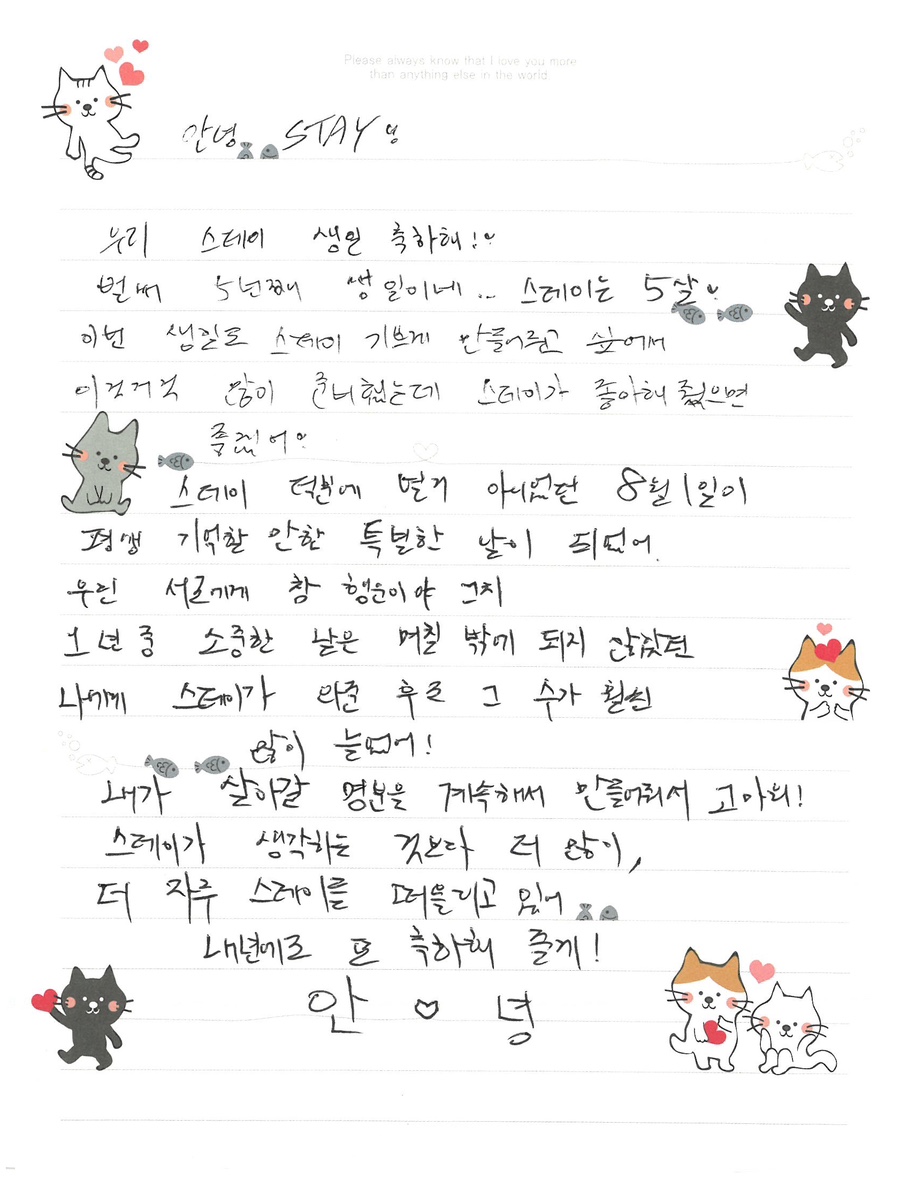 Please always know that I love you more
than anything else in the world
안녕 STAY♡
우리 스테이 생일 축하해!♡
벌써 5년째 생일이네.. 스테이는 5살♡
이번 생일도 스테이 기쁘게 만들어주고 싶어서
이것저것 많이 준비했는데 스테이가 좋아해 줬으면
좋겠어♡
스테이 덕분에 별거 아니었던 8월 1일이
평생 기억할 만한 특별한 날이 되었어.
우린 서로에게 참 행운이야 그치
1년 중 소중한 날은 며칠 밖에 되지 않았던
나에게 스테이가 와준 후로 그 수가 훨씬
많이 늘었어!
내가 살아갈 명분을 계속해서 만들어줘서 고마워!
스테이가 생각하는 것보다 더 많이,
더 자주 스테이를 떠올리고 있어
내년에도 또 축하해 줄게!
안♡녕